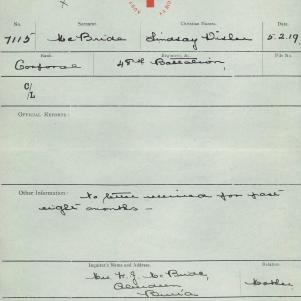 No. Surname. Christian Names.
7115 McBride Lindsay 5.2.19
Rank. Regiment, &c. File No.
Corporal 48th Battalion,
C/L
OFFICIAL REPORTS:
Other Information: no letter received for past
eight months —
Inquirer's Name and Address. Relation.
Mrs H. J. McBride, Mother
Burra